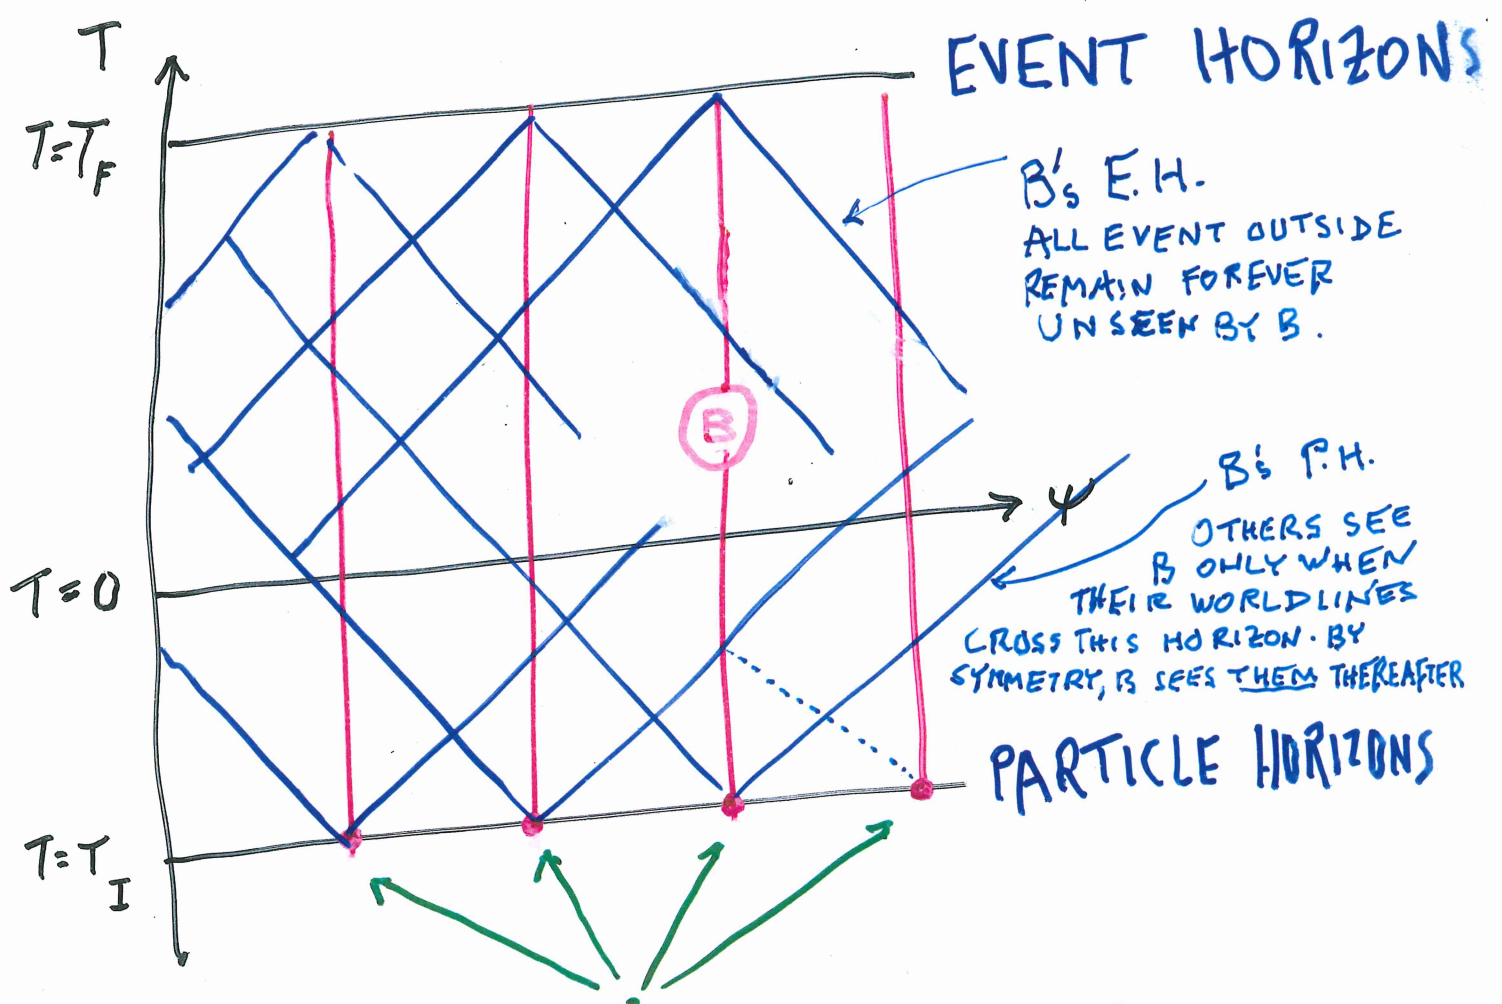 T
EVENT HORIZONS
T=T_F
B's E.H.
ALL EVENT OUTSIDE
REMAIN FOREVER
UNSEEN BY B.
B
B's P.H.
ψ
OTHERS SEE
B ONLY WHEN
T=0
THEIR WORLDLINES
CROSS THIS HORIZON. BY
SYMMETRY, B SEES THEM THEREAFTER
PARTICLE HORIZONS
T=T_I